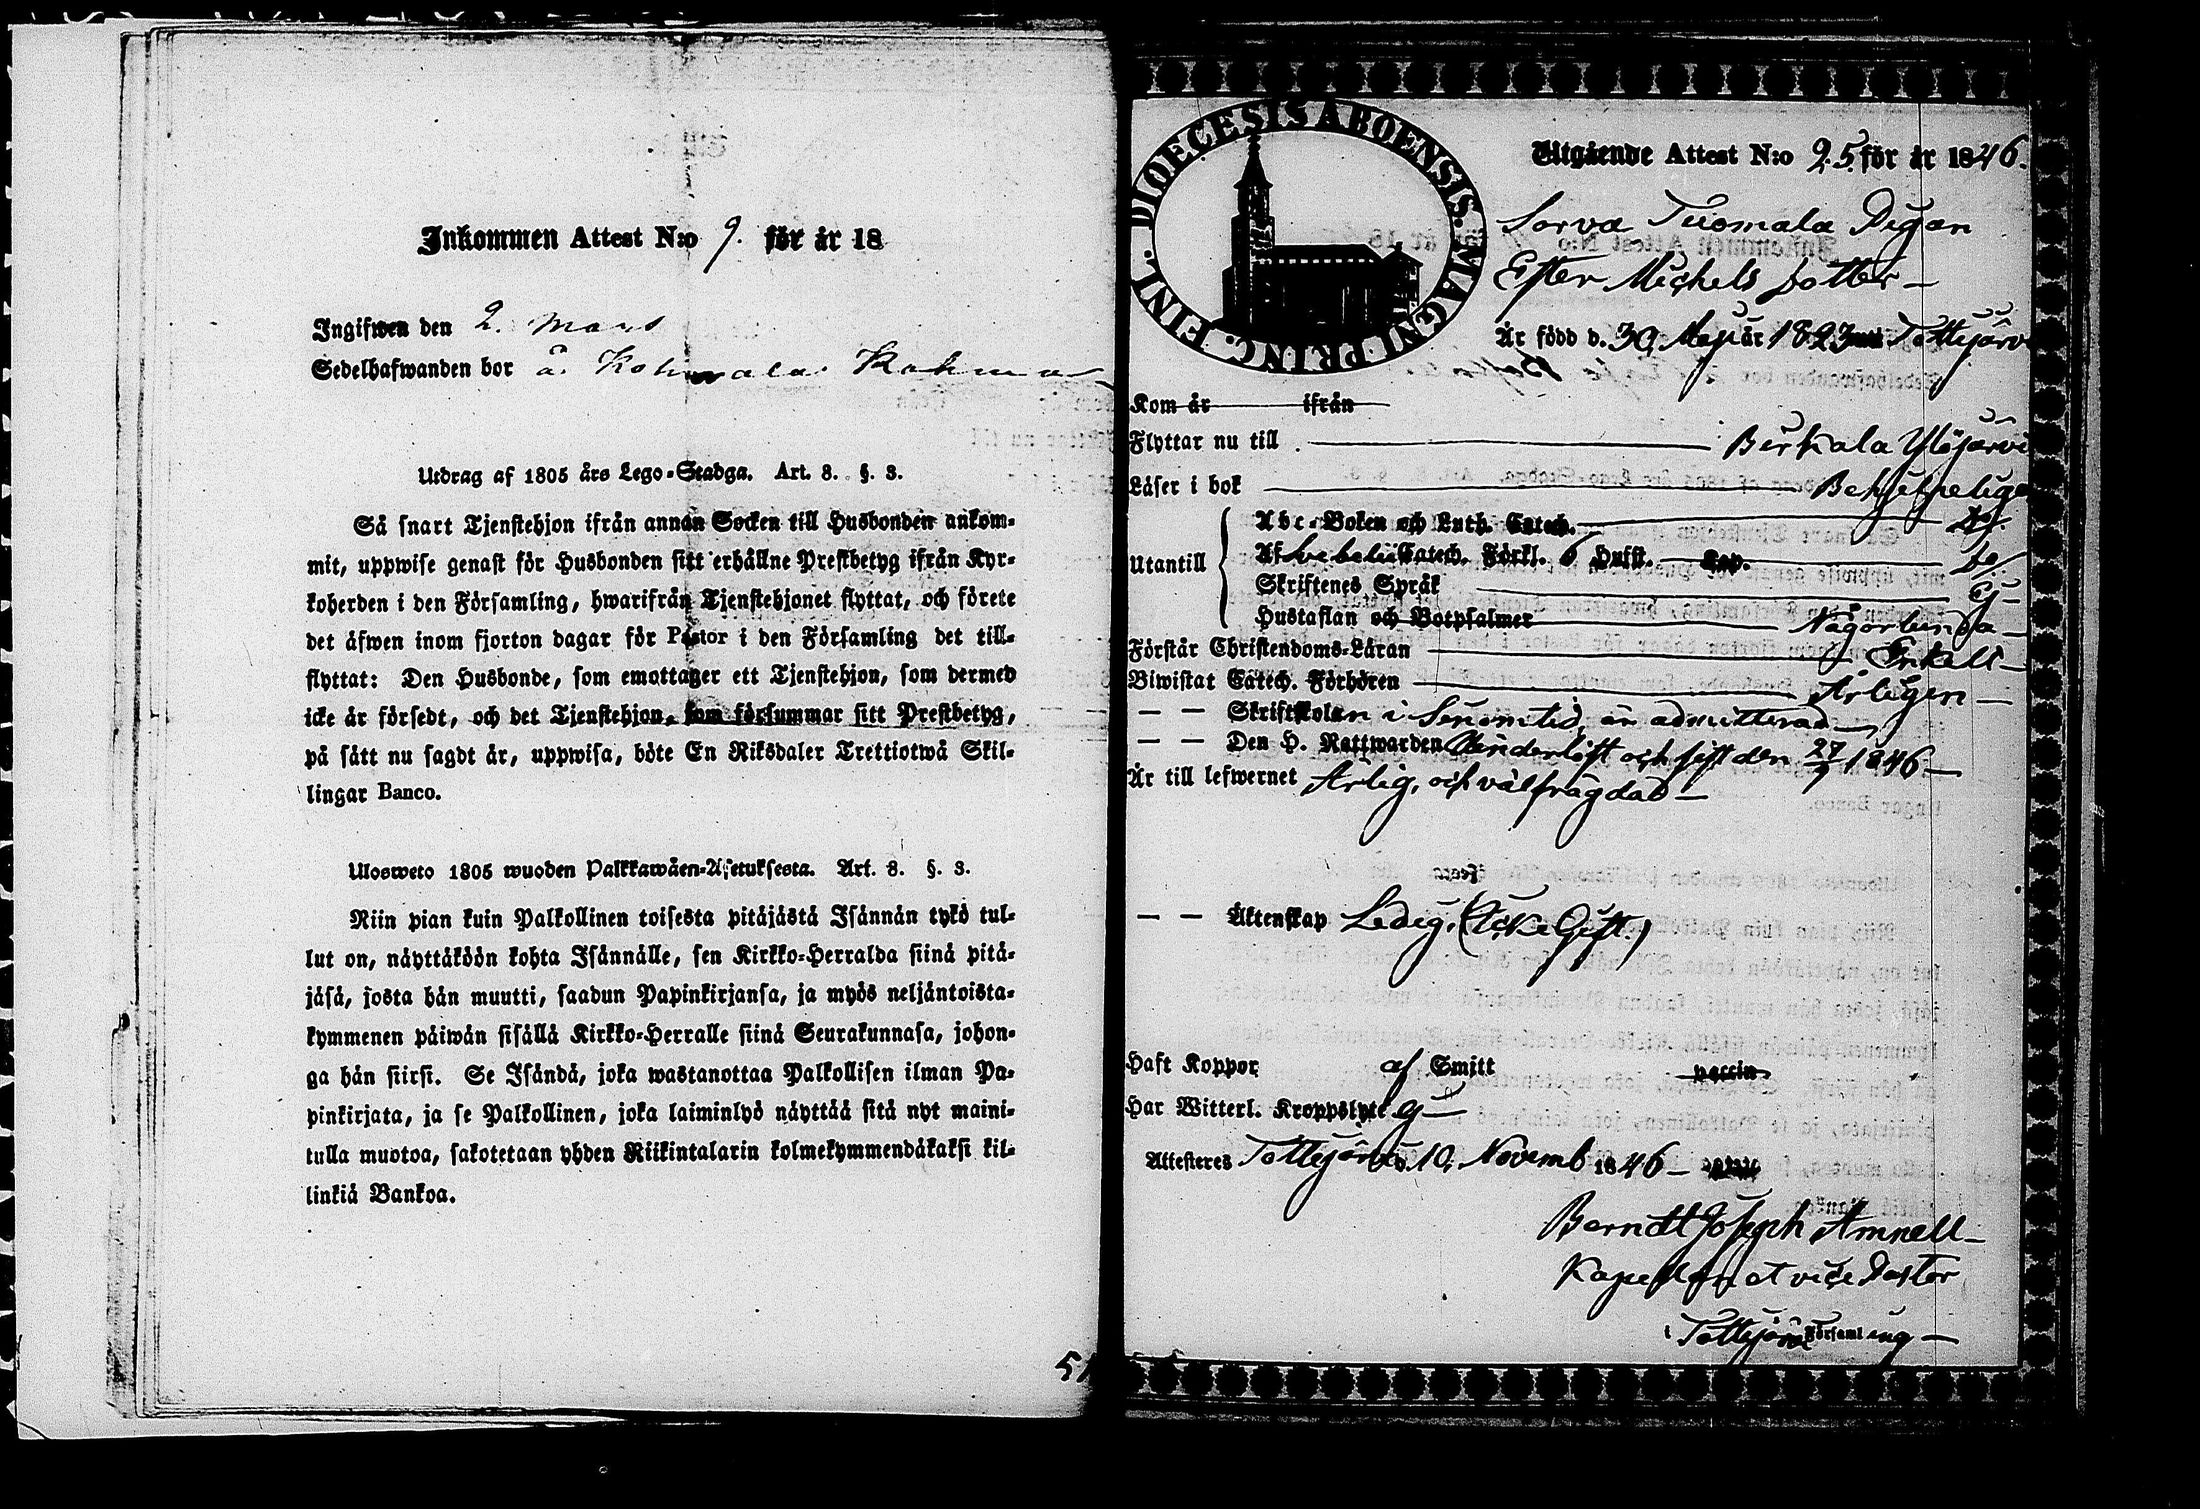 Inkommen Attest N:o 9. för år 18
Ingifwen den 2. Mars
Sedelhafwanden bor å
Utdrag af 1805 års Lego-Stadga. Art. 8. §. 3.
Så snart Tjenstehjon ifrån annan Socken till Husbonden ankom-
mit, uppwise genast för Husbonden sitt erhållne Prestbetyg ifrån Kyr-
koherden i den Församling, hwarifrån Tjenstehjonet flyttat, och förete
det äfwen inom fjorton dagar för Pastor i den Församling det till-
flyttat: Den Husbonde, som emottager ett Tjenstehjon, som dermed
icke är försedt, och det Tjenstehjon, som försummar sitt Prestbetyg,
på sätt nu sagdt är, uppwisa, böte En Riksdaler Trettiotwå Skil-
lingar Banco.
Ulosweto 1805 wuoden Palkkawäen-Asetuksesta. Art. 8. §. 3.
Niin pian kuin Palkollinen toisesta pitäjästä Isännän tykö tul-
lut on, näyttäköön kohta Isännälle, sen Kirkko-Herralda siinä pitä-
jäsä, josta hän muutti, saadun Papinkirjansa, ja myös neljäntoista-
kymmenen päiwän sisällä Kirkko-Herralle siinä Seurakunnasa, johon-
ga hän siirsi. Se Isändä, joka wastanottaa Palkollisen ilman Pa-
pinkirjata, ja se Palkollinen, joka laiminlyö näyttää sitä nyt maini-
tulla muotoa, sakotetaan yhden Riikintalarin kolmekymmendäkaksi kil-
linkiä Bankoa.
DIOECESIS ABOENSIS. MAGNI PRINC. FINL.
Utgående Attest N:o 25. för år 1846.
Sorva Tuomala Pigan
Ester Michels dotter
Är född d. 30 Maji år 1823 Tottijärv
Kom år ifrån
Flyttar nu till Birkala Ylöjärvi
Läser i bok
Utantill
Abc-Boken och Luth. Catech.
Af Svebelii Catech. Förkl. 6 Hufst. Cap.
Skriftenes Språk Ej
Hustaflan och Botpsalmer Någorlunda
Förstår Christendoms-Läran Enkelt
Biwistat Catech. Förhören Årligen
— — Skriftskolan i Sinom tid, är admitterad
— — Den H. Nattwarden Oinderlåst och sist den 27/9 1846
Är till lefwernet Ärlig, och välfrägdad
— — Äktenskap Ledig, (Icke Gift.)
Haft Koppor af Smitt vaccin
Har Witterl. Kroppslyte Ej
Attesteres Tottijärvi d. 10. Novemb 1846
Berndt Joseph Amnell
Kapellan et vice Pastor
i Tottijärvi Församling
51